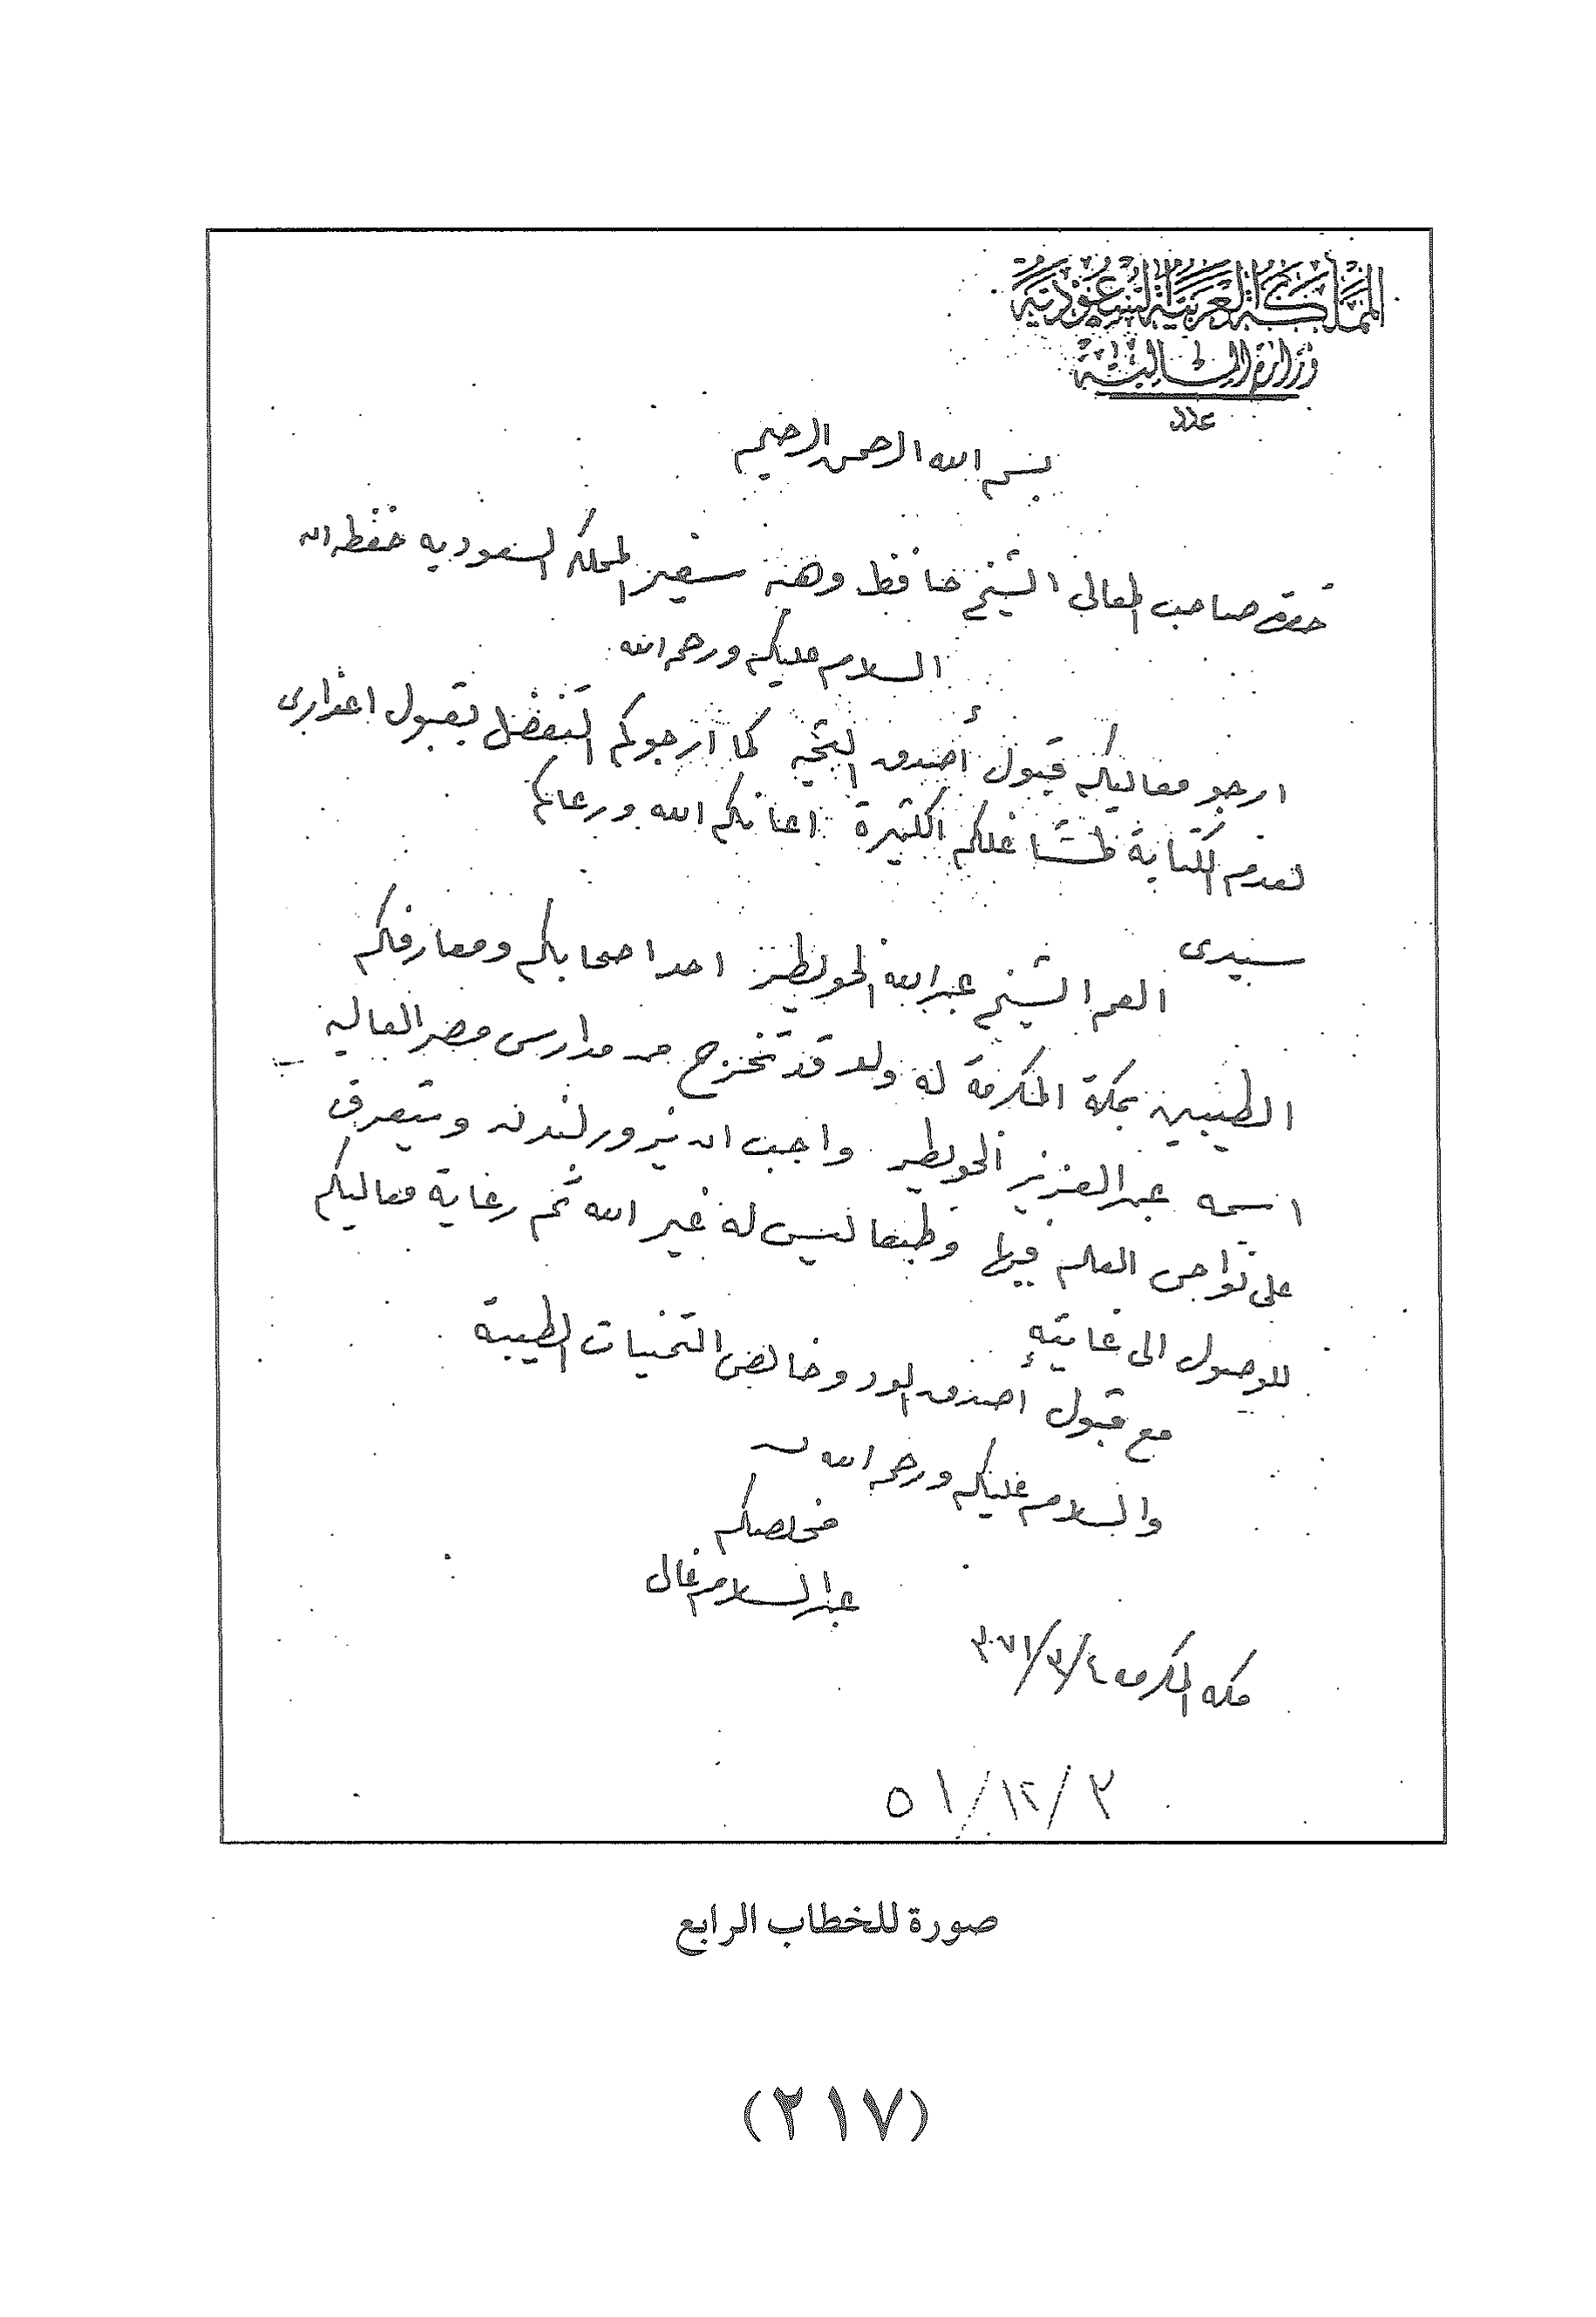 المملكة العربية السعودية
وزارة المالية
عدد
بسم الله الرحمن الرحيم
حضرة صاحب المعالى الشيخ حافظ وهبه سفير المملكه السعوديه حفظه الله
السلام عليكم ورحمة الله
ارجو معاليكم قبول أصدق التحيه كما ارجوكم التفضل بقبول اعذارى
لعدم الكتابة لمشاغلكم الكثيرة اعانكم الله ورعاكم
سيدى
العم الشيخ عبدالله الخويطر احد اصحابكم ومعارفكم
الطيبين بمكة المكرمة له ولد قد تخرج من مدارس مصر العاليه
اسمه عبدالعزيز الخويطر واحب ان يزور لندن ويتعرف
على نواحى العلم فيها وطبعا ليس له غير الله ثم رعاية معاليكم
للوصول الى غايته
مع قبول أصدق الود وخالص التحيات الطيبة
والسلام عليكم ورحمة الله
مخلصكم
عبدالسلام غالى
مكه المكرمه ٤/٣/٣٧١
٣/١٢/٥١
صورة للخطاب الرابع
(٢١٧)